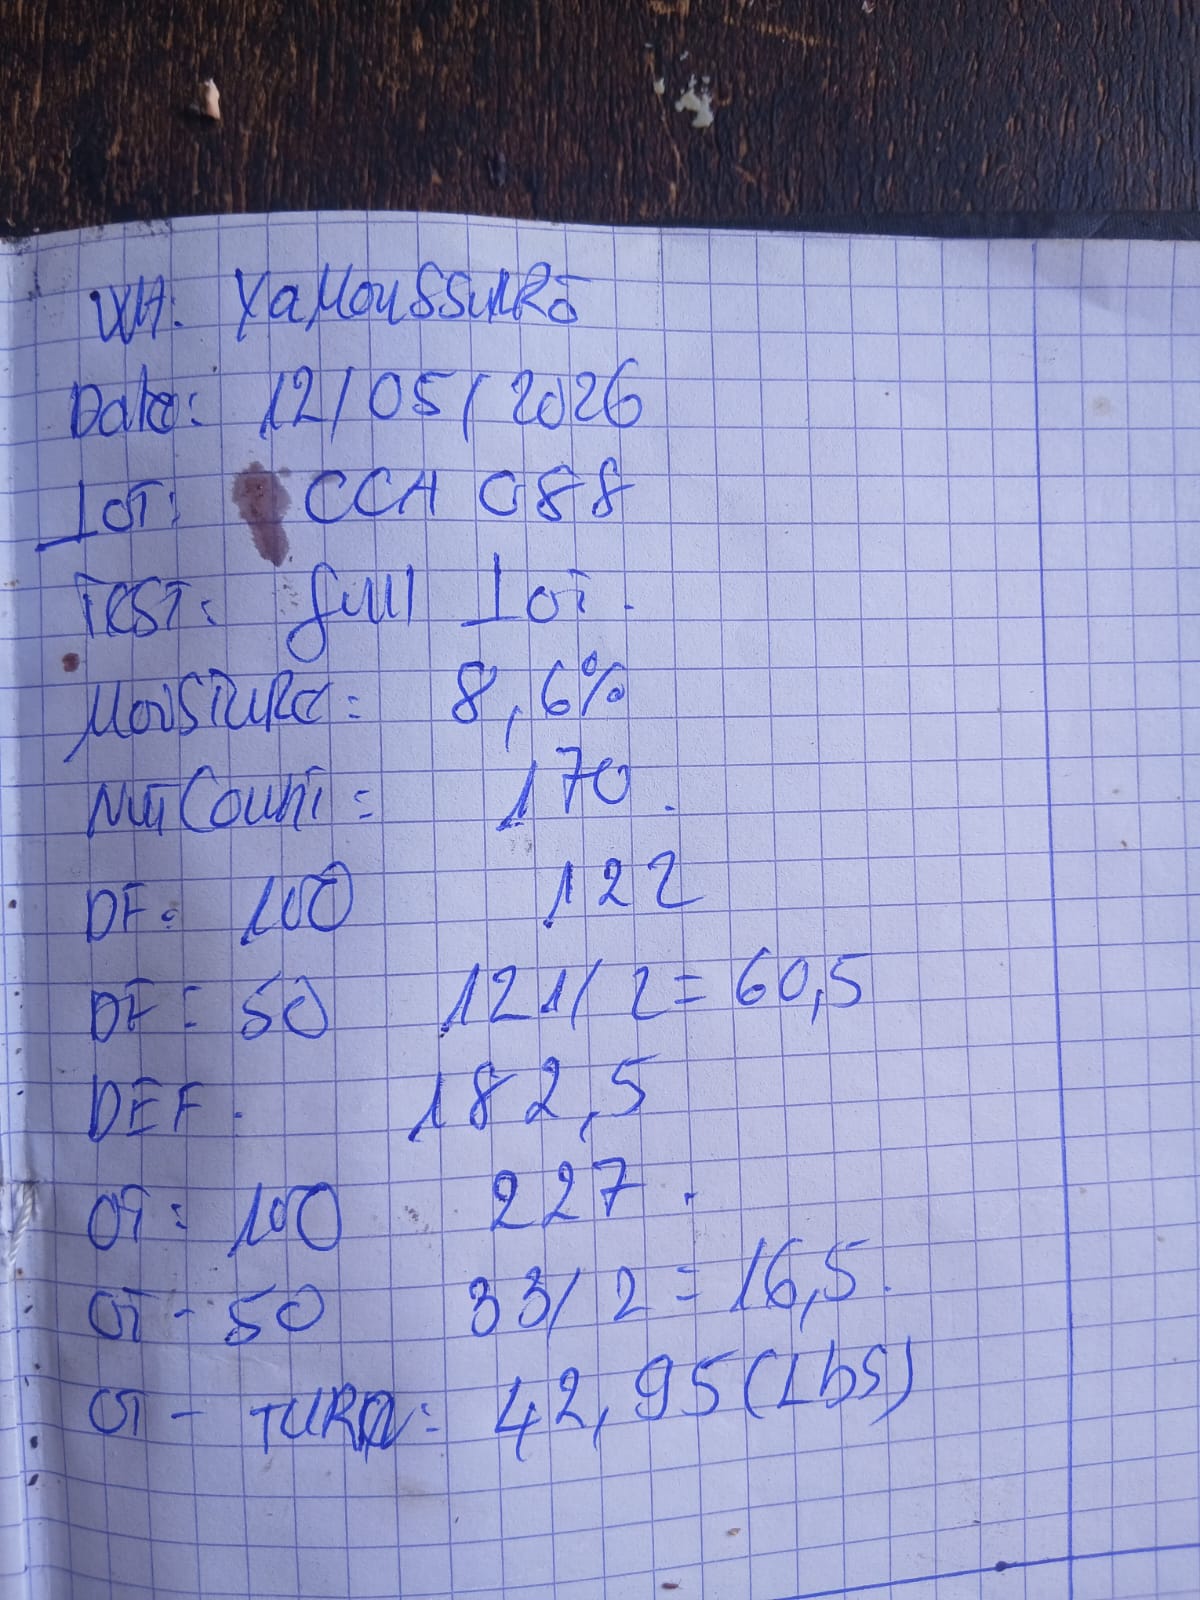 WH: YaMouSSuKRo
Date: 12/05/2026
LOT: CCA 088
TEST: full LOT.
MOISTURE: 8,6%
Nut Count: 170.
DF: 100 122
DF: 50 121/2=60,5
DEF. 182,5
OT: 100 227.
OT-50 33/2=16,5.
OT- TURN: 42,95(Lbs)